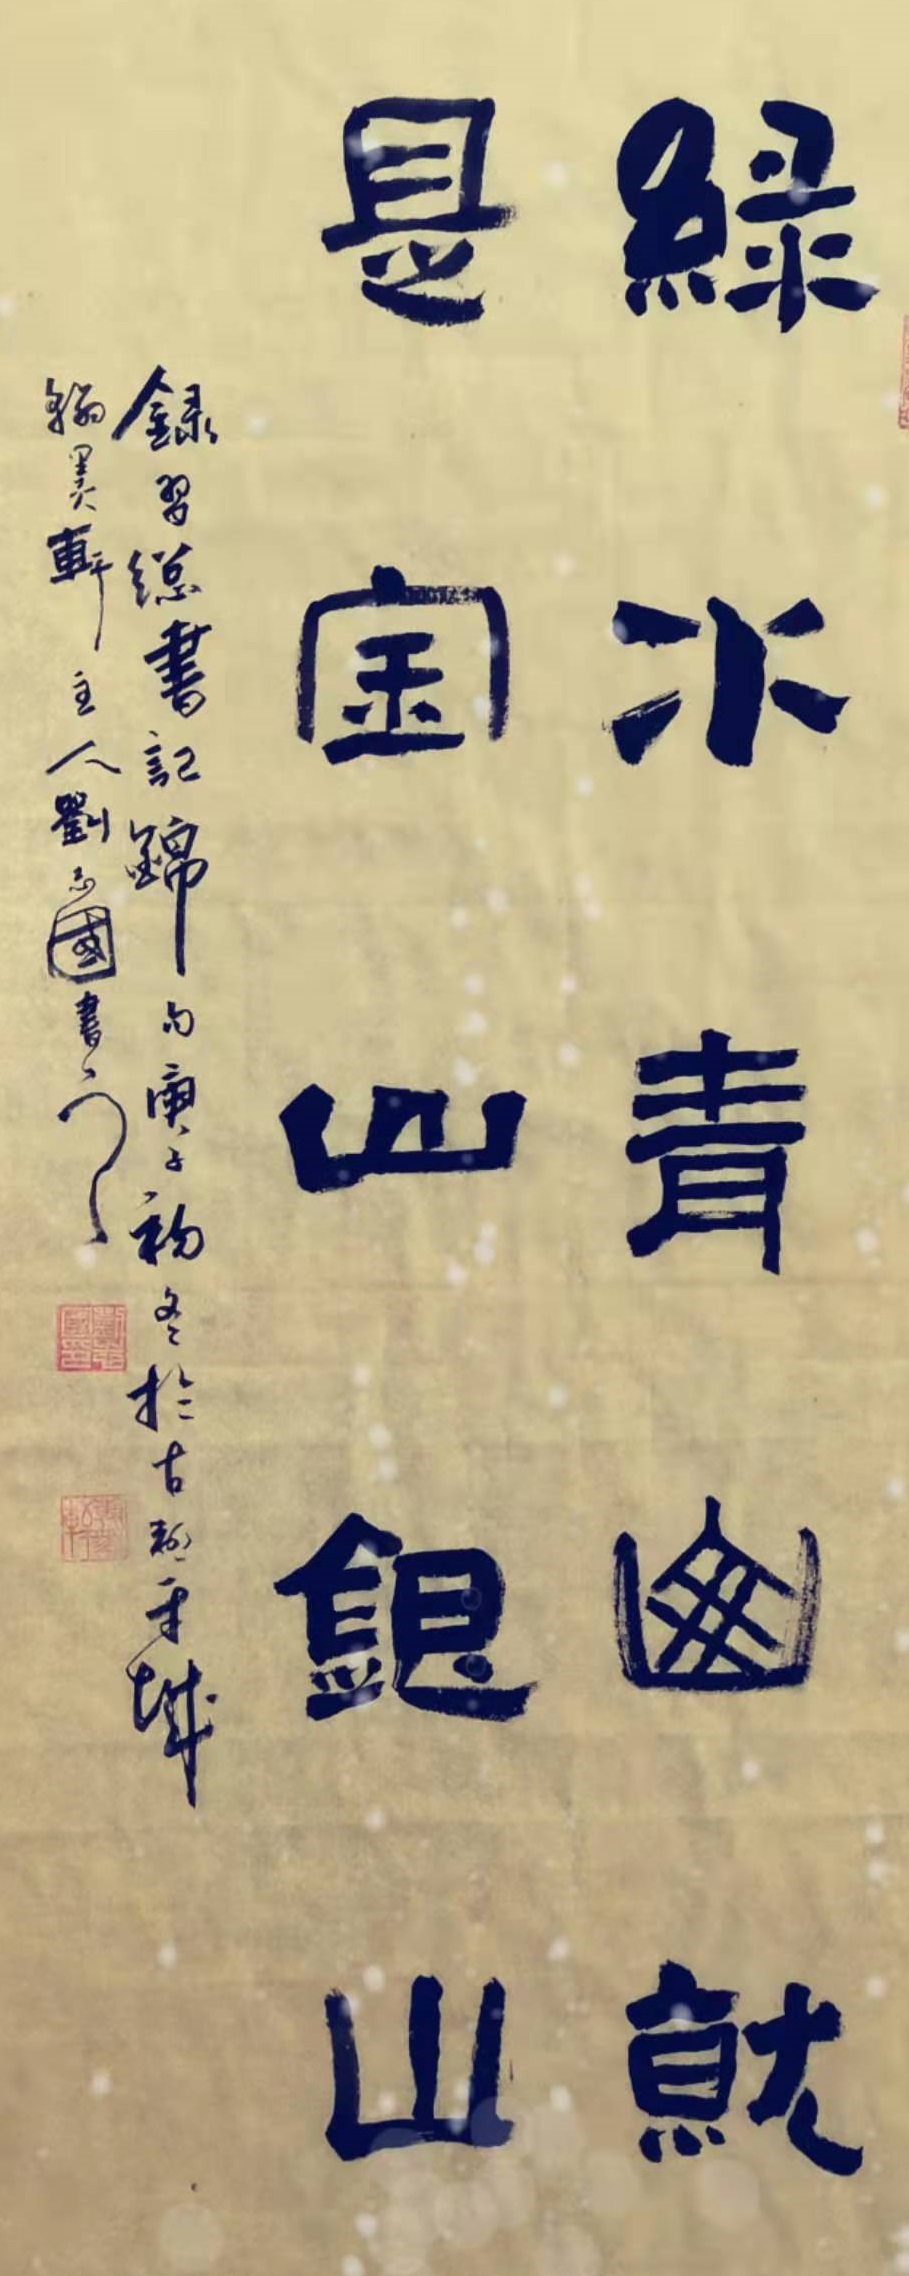 綠水青山就
是金山銀山
錄習總書記錦句庚子初冬於古都平城
翰墨軒主人劉志國書